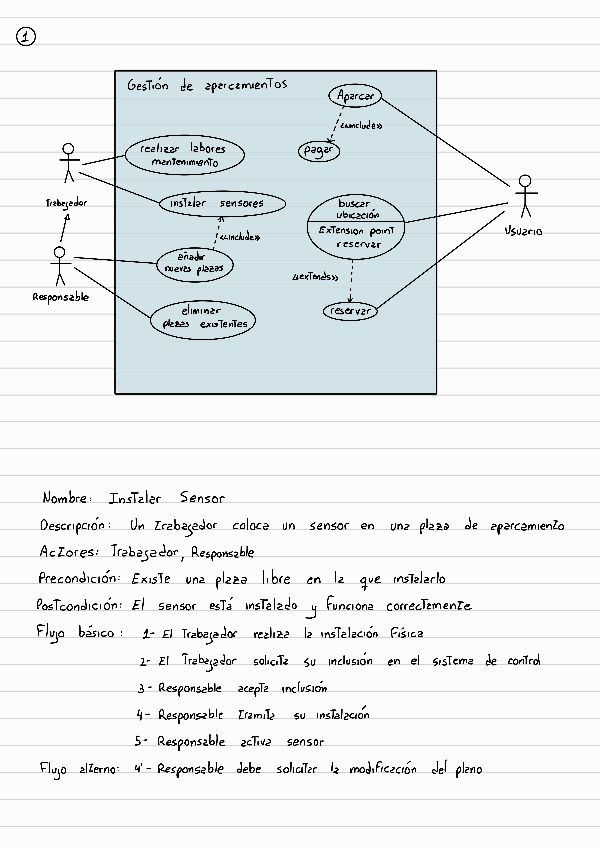 1
Gestión de aparcamientos
Aparcar
«include»
pagar
realizar labores
mantenimiento
Trabajador
instalar sensores
buscar
ubicación
Extension point
reservar
Usuario
«include»
añadir
nuevas plazas
«extends»
Responsable
eliminar
plazas existentes
reservar
Nombre: Instalar Sensor
Descripción: Un trabajador coloca un sensor en una plaza de aparcamiento
Actores: Trabajador, Responsable
Precondición: Existe una plaza libre en la que instalarlo
Postcondición: El sensor está instalado y funciona correctamente
Flujo básico: 1- El Trabajador realiza la instalación física
2- El Trabajador solicita su inclusión en el sistema de control
3- Responsable acepta inclusión
4- Responsable tramita su instalación
5- Responsable activa sensor
Flujo alterno: 4'- Responsable debe solicitar la modificación del plano